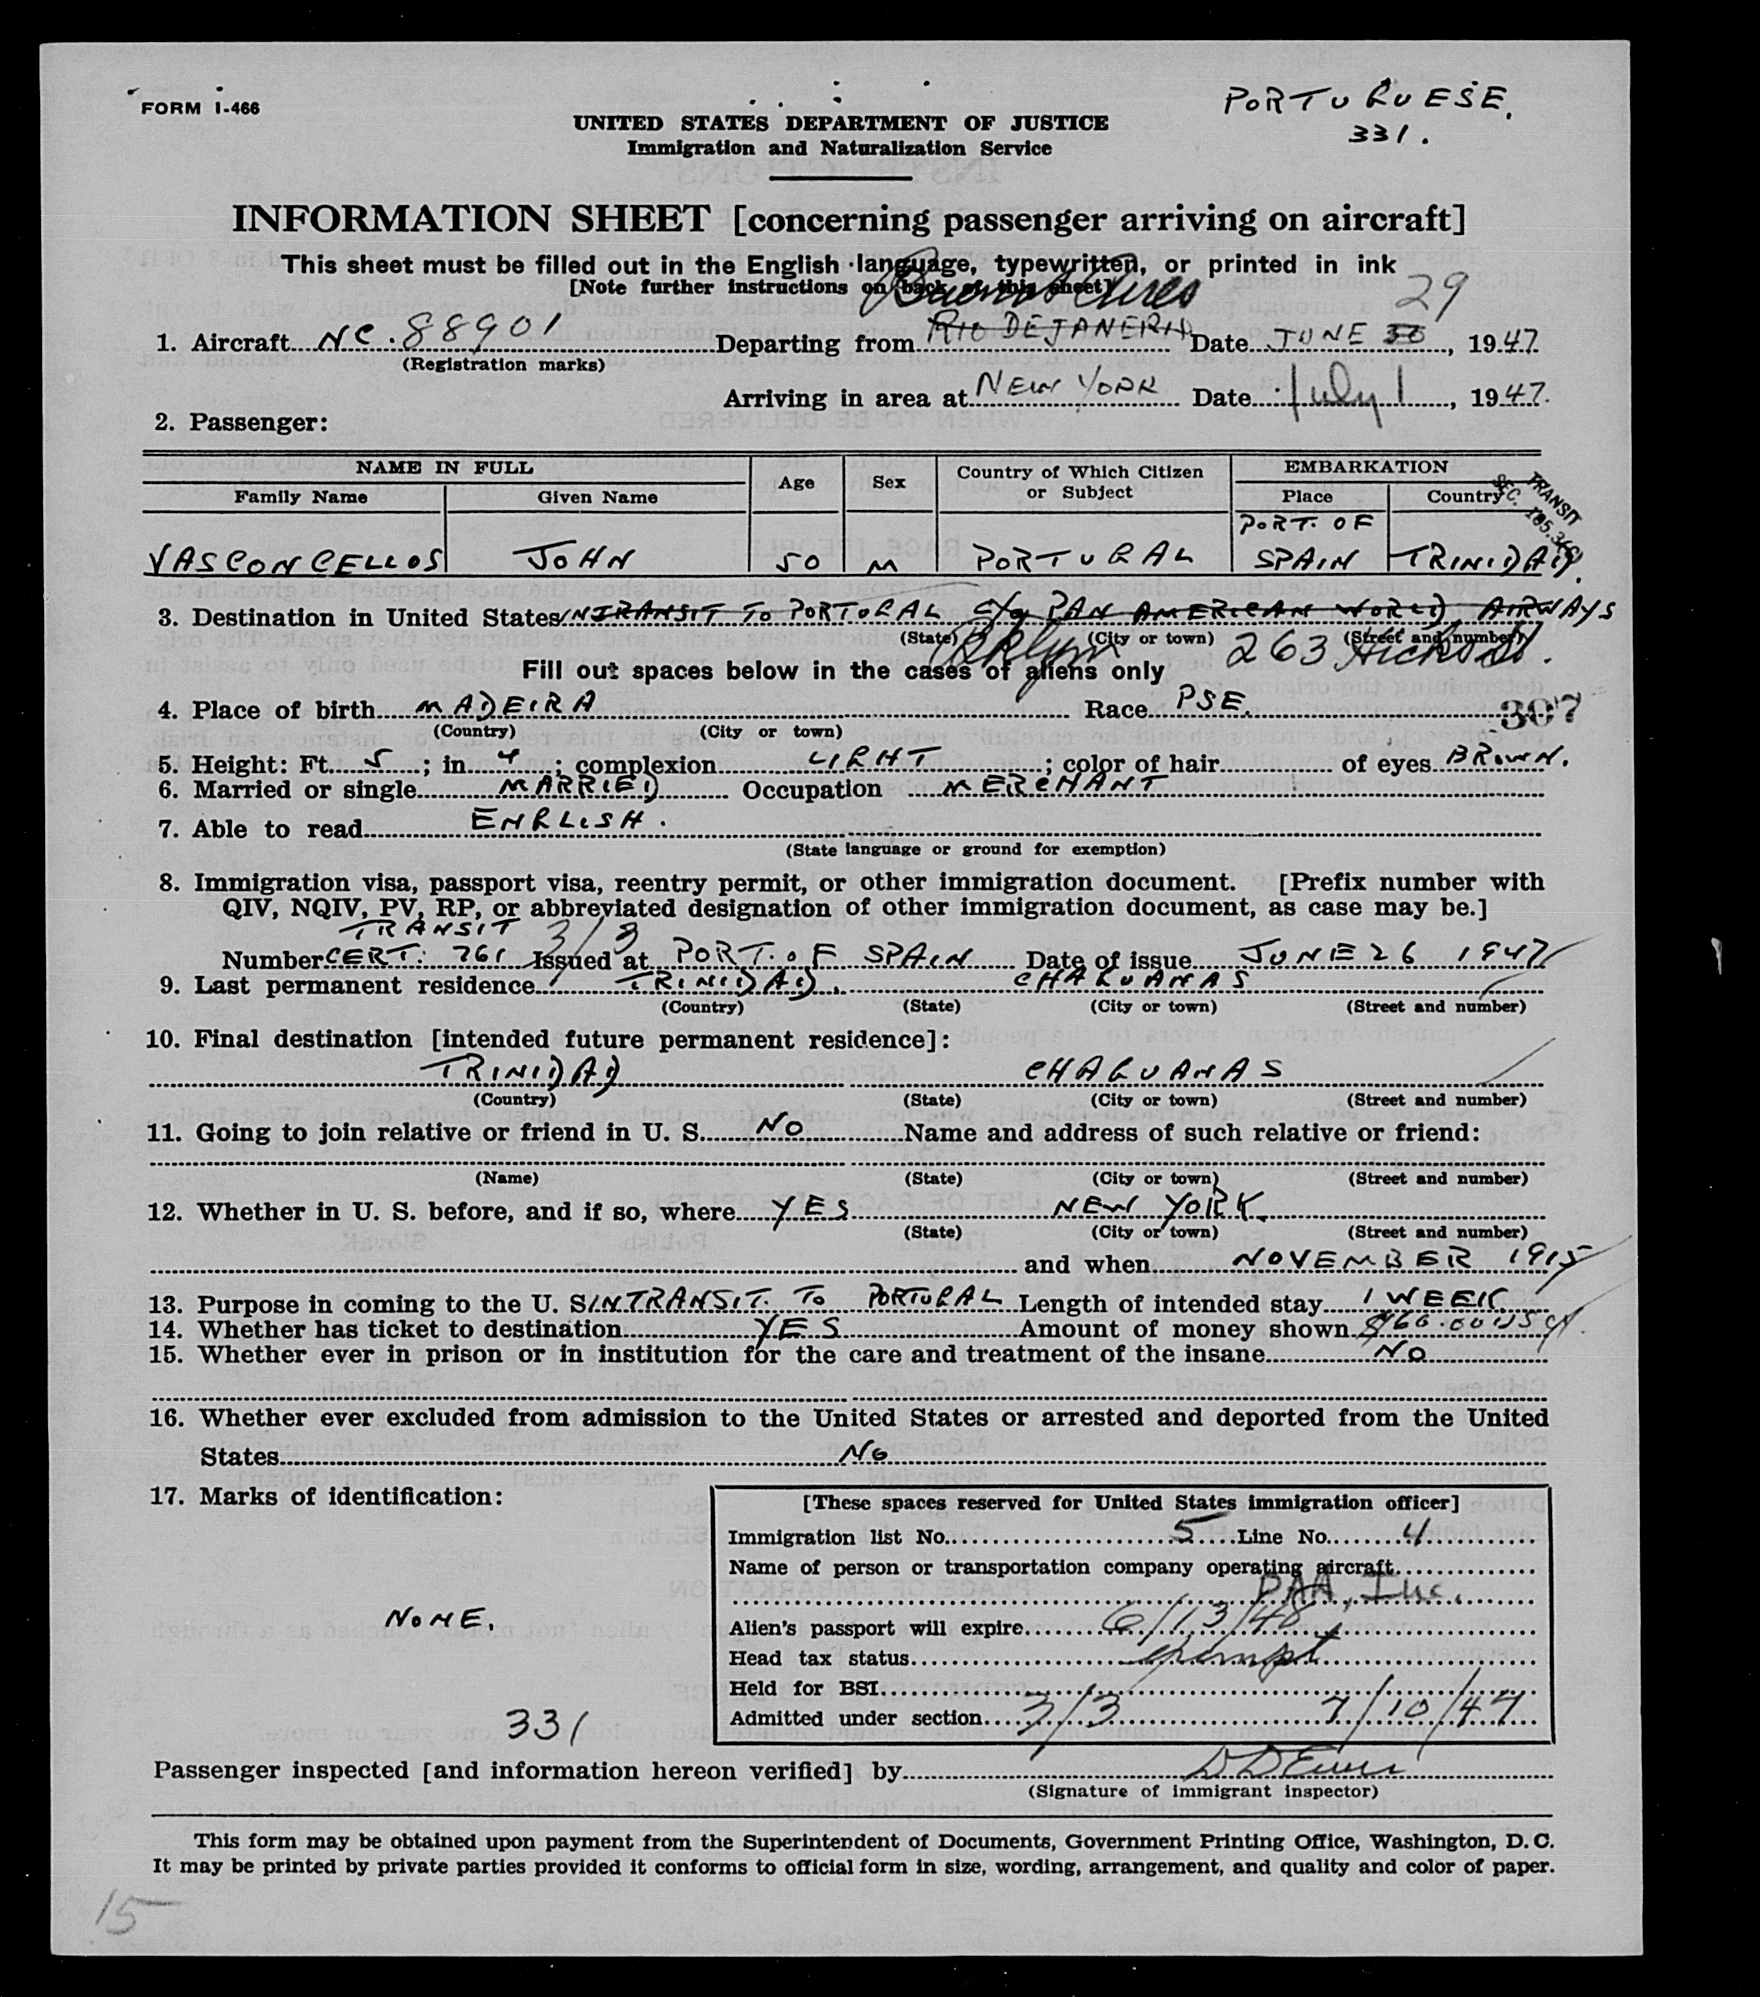 FORM I-466
PORTUGUESE.
331.
UNITED STATES DEPARTMENT OF JUSTICE
Immigration and Naturalization Service
INFORMATION SHEET [concerning passenger arriving on aircraft]
This sheet must be filled out in the English language, typewritten, or printed in ink
[Note further instructions on back of this sheet]
Buenos Aires 29
1. Aircraft NC. 88901 Departing from RIO DE JANERIA Date JUNE 30, 1947
(Registration marks)
Arriving in area at NEW YORK Date July 1, 1947.
2. Passenger:
NAME IN FULL Age Sex Country of Which Citizen or Subject EMBARKATION
Family Name Given Name Place Country
TRANSIT
SEC.
PORT. OF
VASCONCELLOS JOHN 50 M PORTUGAL SPAIN TRINIDAD.
3. Destination in United States INTRANSIT TO PORTUGAL C/o PAN AMERICAN WORLD AIRWAYS
(State) (City or town) (Street and number)
Bklyn 263 Hicks St.
Fill out spaces below in the cases of aliens only
4. Place of birth MADEIRA Race PSE. 307
(Country) (City or town)
5. Height: Ft. 5; in. 4; complexion LIGHT; color of hair of eyes BROWN.
6. Married or single MARRIED Occupation MERCHANT
7. Able to read ENGLISH.
(State language or ground for exemption)
8. Immigration visa, passport visa, reentry permit, or other immigration document. [Prefix number with
QIV, NQIV, PV, RP, or abbreviated designation of other immigration document, as case may be.]
TRANSIT 3/3
Number CERT. 761 Issued at PORT. OF SPAIN Date of issue JUNE 26 1947
9. Last permanent residence TRINIDAD. CHAGUANAS
(Country) (State) (City or town) (Street and number)
10. Final destination [intended future permanent residence]:
TRINIDAD CHAGUANAS
(Country) (State) (City or town) (Street and number)
11. Going to join relative or friend in U. S. NO Name and address of such relative or friend:
(Name) (State) (City or town) (Street and number)
12. Whether in U. S. before, and if so, where YES NEW YORK.
(State) (City or town) (Street and number)
and when NOVEMBER 1915
13. Purpose in coming to the U. S. INTRANSIT. TO PORTUGAL Length of intended stay 1 WEEK
14. Whether has ticket to destination YES Amount of money shown
15. Whether ever in prison or in institution for the care and treatment of the insane NO
16. Whether ever excluded from admission to the United States or arrested and deported from the United
States NO
17. Marks of identification:
NONE.
331
[These spaces reserved for United States immigration officer]
Immigration list No. 5 Line No. 4
Name of person or transportation company operating aircraft
PAA, Inc.
Alien's passport will expire 6/13/48
Head tax status exempt
Held for BSI
Admitted under section 3/3 7/10/47
Passenger inspected [and information hereon verified] by
(Signature of immigrant inspector)
This form may be obtained upon payment from the Superintendent of Documents, Government Printing Office, Washington, D. C.
It may be printed by private parties provided it conforms to official form in size, wording, arrangement, and quality and color of paper.
15